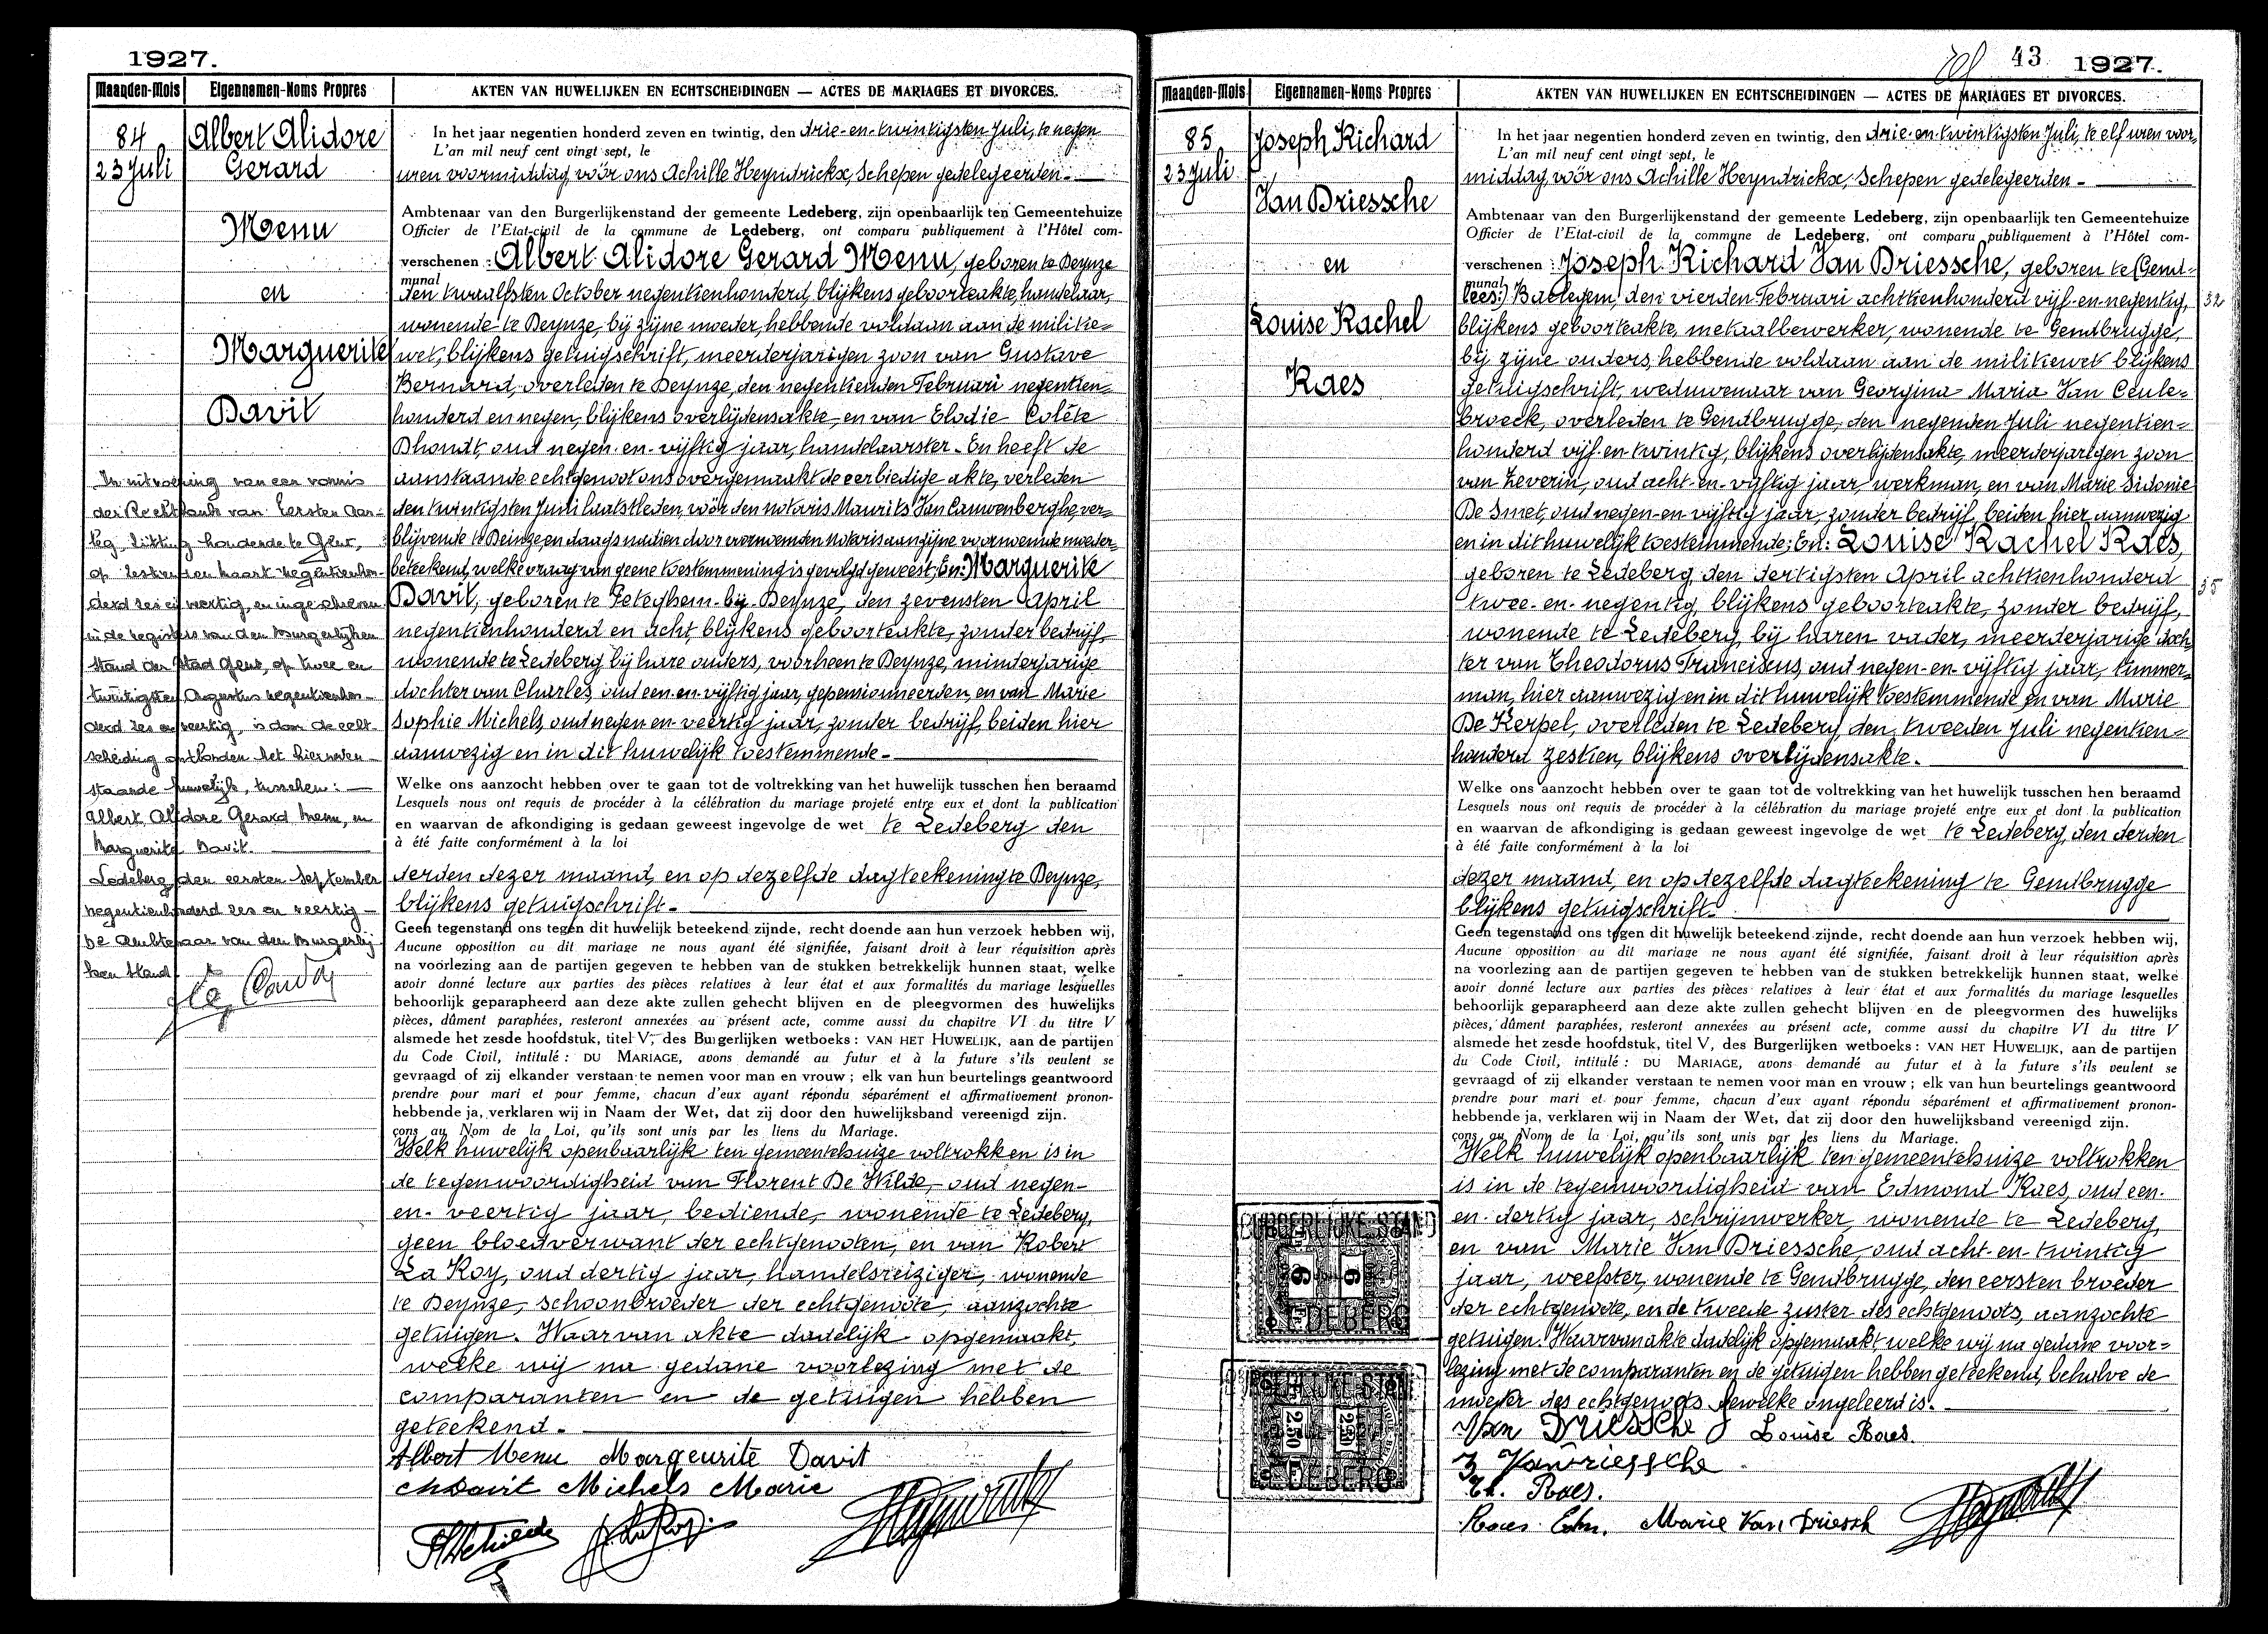 1927.
Maanden-Mois Eigennamen-Noms Propres AKTEN VAN HUWELIJKEN EN ECHTSCHEIDINGEN — ACTES DE MARIAGES ET DIVORCES.
84
23 Juli
Albert Alidore
Gerard
Menu
en
Marguerite
Davit
In uitvoering van een vonnis
der Rechtbank van Eersten Aan-
leg, zitting houdende te Gent,
op zestienden Maart negentienhon-
derd zes en veertig, en ingeschreven
in de registers van den Burgerlijken
stand der stad Gent, op twee en
twintigsten Augustus negentienhon-
derd zes en veertig, is door de echt-
scheiding ontbonden het hierneven-
staande huwelijk, tusschen: —
Albert Alidore Gerard Menu, en
Marguerite Davit.
Ledeberg, den eersten September
negentienhonderd zes en veertig —
De Ambtenaar van den Burgerlij-
ken Stand
In het jaar negentien honderd zeven en twintig, den drie-en-twintigsten Juli, te negen
L'an mil neuf cent vingt sept, le
uren voormiddag, vóór ons Achille Heyndrickx, Schepen gedelegeerden. —
Ambtenaar van den Burgerlijkenstand der gemeente Ledeberg, zijn openbaarlijk ten Gemeentehuize
Officier de l'Etat-civil de la commune de Ledeberg, ont comparu publiquement à l'Hôtel com-
verschenen : Albert Alidore Gerard Menu, geboren te Deynze
munal
den twaalfsten October negentienhonderd, blijkens geboorteakte, handelaar,
wonende te Deynze, bij zijne moeder, hebbende voldaan aan de militie=
wet, blijkens getuigschrift, meerderjarigen zoon van Gustave
Bernard, overleden te Deynze, den negentienden Februari negentien=
honderd en negen, blijkens overlijdensakte, en van Elodie Colète
Dhondt, oud negen-en-vijftig jaar, handelaarster. En heeft de
aanstaande echtgenoot ons overgemaakt de eerbiedige akte, verleden
den twintigsten Juni laatstleden, vóór den notaris Maurits Van Cauwenberghe, ver=
blijvende te Deinze, en daags nadien door voornoemden notaris aan zijne voornoemde moeder=
beteekend, welke vraag van geene toestemming is gevolgd geweest; En: Marguerite
Davit, geboren te Peteghem-bij-Deynze, den zevensten April
negentienhonderd en acht, blijkens geboorteakte, zonder bedrijf,
wonende te Ledeberg bij hare ouders, voorheen te Deynze, minderjarige
dochter van Charles, oud een-en-vijftig jaar, gepensionneerden, en van Marie
Sophie Michels, oud negen-en-veertig jaar, zonder bedrijf, beiden hier
aanwezig en in dit huwelijk toestemmende. —
Welke ons aanzocht hebben over te gaan tot de voltrekking van het huwelijk tusschen hen beraamd
Lesquels nous ont requis de procéder à la célébration du mariage projeté entre eux et dont la publication
en waarvan de afkondiging is gedaan geweest ingevolge de wet te Ledeberg den
à été faite conformément à la loi
derden dezer maand, en op dezelfde dagteekening te Deynze,
blijkens getuigschrift. —
Geen tegenstand ons tegen dit huwelijk beteekend zijnde, recht doende aan hun verzoek hebben wij,
Aucune opposition au dit mariage ne nous ayant été signifiée, faisant droit à leur réquisition après
na voorlezing aan de partijen gegeven te hebben van de stukken betrekkelijk hunnen staat, welke
avoir donné lecture aux parties des pièces relatives à leur état et aux formalités du mariage lesquelles
behoorlijk geparapheerd aan deze akte zullen gehecht blijven en de pleegvormen des huwelijks
pièces, dûment paraphées, resteront annexées au présent acte, comme aussi du chapitre VI du titre V
alsmede het zesde hoofdstuk, titel V, des Burgerlijken wetboeks : VAN HET HUWELIJK, aan de partijen
du Code Civil, intitulé : DU MARIAGE, avons demandé au futur et à la future s'ils veulent se
gevraagd of zij elkander verstaan te nemen voor man en vrouw ; elk van hun beurtelings geantwoord
prendre pour mari et pour femme, chacun d'eux ayant répondu séparément et affirmativement pronon-
hebbende ja, verklaren wij in Naam der Wet, dat zij door den huwelijksband vereenigd zijn.
çons au Nom de la Loi, qu'ils sont unis par les liens du Mariage.
Welk huwelijk openbaarlijk ten gemeentehuize voltrokken is in
de tegenwoordigheid van Florent De Wilde, oud negen-
en-veertig jaar, bediende, wonende te Ledeberg,
geen bloedverwant der echtgenooten, en van Robert
La Roy, oud dertig jaar, handelsreiziger, wonende
te Deynze, schoonbroeder der echtgenoote, aanzochte
getuigen. Waarvan akte dadelijk opgemaakt,
welke wij na gedane voorlezing met de
comparanten en de getuigen hebben
geteekend. —
Albert Menu Margeurite Davit
Ch Davit Michels Marie
43 1927.
Maanden-Mois Eigennamen-Noms Propres AKTEN VAN HUWELIJKEN EN ECHTSCHEIDINGEN — ACTES DE MARIAGES ET DIVORCES.
85
23 Juli
Joseph Richard
Van Driessche
en
Louise Rachel
Raes
In het jaar negentien honderd zeven en twintig, den drie-en-twintigsten Juli, te elf uren voor=
L'an mil neuf cent vingt sept, le
middag, vóór ons Achille Heyndrickx, Schepen gedelegeerden. —
Ambtenaar van den Burgerlijkenstand der gemeente Ledeberg, zijn openbaarlijk ten Gemeentehuize
Officier de l'Etat-civil de la commune de Ledeberg, ont comparu publiquement à l'Hôtel com-
verschenen : Joseph Richard Van Driessche, geboren te (Gend=
munal
lees:) Baelegem, den vierden Februari achttienhonderd vijf-en-negentig, 32
blijkens geboorteakte, metaalbewerker, wonende te Gendbrugge,
bij zijne ouders, hebbende voldaan aan de militiewet blijkens
getuigschrift, weduwenaar van Georgina Maria Van Ceule=
broeck, overleden te Gendbrugge, den negenden Juli negentien=
honderd vijf-en-twintig, blijkens overlijdensakte, meerderjarigen zoon
van Zeverin, oud acht-en-vijftig jaar, werkman, en van Marie Sidonie
De Smet, oud negen-en-vijftig jaar, zonder bedrijf, beiden hier aanwezig
en in dit huwelijk toestemmende; En: Louise Rachel Raes,
geboren te Ledeberg, den dertigsten April achttienhonderd 35
twee-en-negentig, blijkens geboorteakte, zonder bedrijf,
wonende te Ledeberg, bij haren vader, meerderjarige doch
ter van Theodorus Franciscus, oud negen-en-vijftig jaar, timmer=
man, hier aanwezig en in dit huwelijk toestemmende en van Marie
De Kerpel, overleden te Ledeberg, den tweeden Juli negentien=
honderd zestien, blijkens overlijdensakte. —
Welke ons aanzocht hebben over te gaan tot de voltrekking van het huwelijk tusschen hen beraamd
Lesquels nous ont requis de procéder à la célébration du mariage projeté entre eux et dont la publication
en waarvan de afkondiging is gedaan geweest ingevolge de wet te Ledeberg, den derden
à été faite conformément à la loi
dezer maand, en op dezelfde dagteekening te Gendbrugge
blijkens getuigschrift. —
Geen tegenstand ons tegen dit huwelijk beteekend zijnde, recht doende aan hun verzoek hebben wij,
Aucune opposition au dit mariage ne nous ayant été signifiée, faisant droit à leur réquisition après
na voorlezing aan de partijen gegeven te hebben van de stukken betrekkelijk hunnen staat, welke
avoir donné lecture aux parties des pièces relatives à leur état et aux formalités du mariage lesquelles
behoorlijk geparapheerd aan deze akte zullen gehecht blijven en de pleegvormen des huwelijks
pièces, dûment paraphées, resteront annexées au présent acte, comme aussi du chapitre VI du titre V
alsmede het zesde hoofdstuk, titel V, des Burgerlijken wetboeks : VAN HET HUWELIJK, aan de partijen
du Code Civil, intitulé : DU MARIAGE, avons demandé au futur et à la future s'ils veulent se
gevraagd of zij elkander verstaan te nemen voor man en vrouw ; elk van hun beurtelings geantwoord
prendre pour mari et pour femme, chacun d'eux ayant répondu séparément et affirmativement pronon-
hebbende ja, verklaren wij in Naam der Wet, dat zij door den huwelijksband vereenigd zijn.
çons au Nom de la Loi, qu'ils sont unis par les liens du Mariage.
Welk huwelijk openbaarlijk ten gemeentehuize voltrokken
is in de tegenwoordigheid van Edmond Raes, oud een-
en-dertig jaar, schrijnwerker, wonende te Ledeberg,
en van Marie Van Driessche, oud acht-en-twintig
jaar, weefster, wonende te Gendbrugge, den eersten broeder
der echtgenoote, en de tweede zuster des echtgenoots, aanzochte
getuigen. Waarvan akte dadelijk opgemaakt, welke wij na gedane voor=
lezing met de comparanten en de getuigen hebben geteekend, behalve de
moeder des echtgenoots dewelke ongeleerd is. —
BURGERLIJKE STAND
6 6
LEDEBERG
2.50 2.50
LEDEBERG
Van Driessche J Louise Raes.
Z Vandriessche
Th. Raes.
Raes Edm. Marie Van Driesch